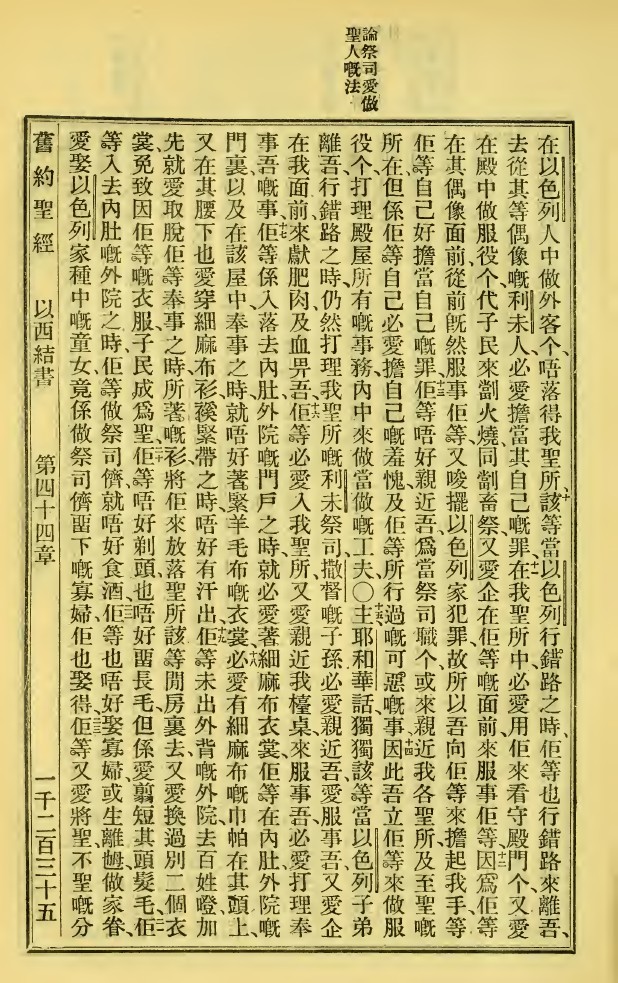 論祭司愛做
聖人嘅法
在以色列人中做外客个、唔落得我聖所、十該等當以色列行錯路之時、佢等也行錯路來離吾、
去從其等偶像嘅利未人必愛擔當其自己嘅罪、十一在我聖所中必愛用佢來看守殿門个、又愛
在殿中做服役个、代子民來劏火燒同劏畜祭、又愛企在佢等嘅面前、來服事佢等、十二因爲佢等
在其偶像面前、從前旣然服事佢等、又唆擺以色列家犯罪、故所以吾向佢等來擔起我手、等
佢等自己好擔當自己嘅罪、十三佢等唔好親近吾、爲當祭司職个、或來親近我各聖所及至聖嘅
所在、但係佢等自己必愛擔自己嘅羞愧、及佢等所行過嘅可惡嘅事、十四因此吾立佢等來做服
役个、打理殿屋所有嘅事務、內中來做當做嘅工夫、〇十五主耶和華話、獨獨該等當以色列子弟
離吾、行錯路之時、仍然打理我聖所嘅利未祭司、撒督嘅子孫、必愛親近吾、愛服事吾、又愛企
在我面前、來獻肥肉及血畀吾、十六佢等必愛入我聖所、又愛親近我檯桌、來服事吾、必愛打理奉
事吾嘅事、十七佢等係入落去內肚外院嘅門戶之時、就必愛著細麻布衣裳、佢等在內肚外院嘅
門裏以及在該屋中奉事之時、就唔好著緊羊毛布嘅衣裳、十八必愛有細麻布嘅巾帕在其頭上、
又在其腰下也愛穿細麻布衫褲、緊帶之時、唔好有汗出、十九佢等未出外背嘅外院去百姓嗰加
先、就愛取脫佢等奉事之時所著嘅衫、將佢來放落聖所該等間房裏去、又愛換過別二個衣
裳、免致因佢等嘅衣服、子民成爲聖、二十佢等唔好剃頭、也唔好畱長毛、但係愛翦短其頭髮毛、二一佢
等入去內肚嘅外院之時、佢等做祭司儕就唔好食酒、二二佢等也唔好娶寡婦或生離嫲做家眷、
愛娶以色列家種中嘅童女、竟係做祭司儕畱下嘅寡婦、佢也娶得、二三佢等又愛將聖、不聖嘅分
舊約聖經 以西結書 第四十四章 一千二百三十五